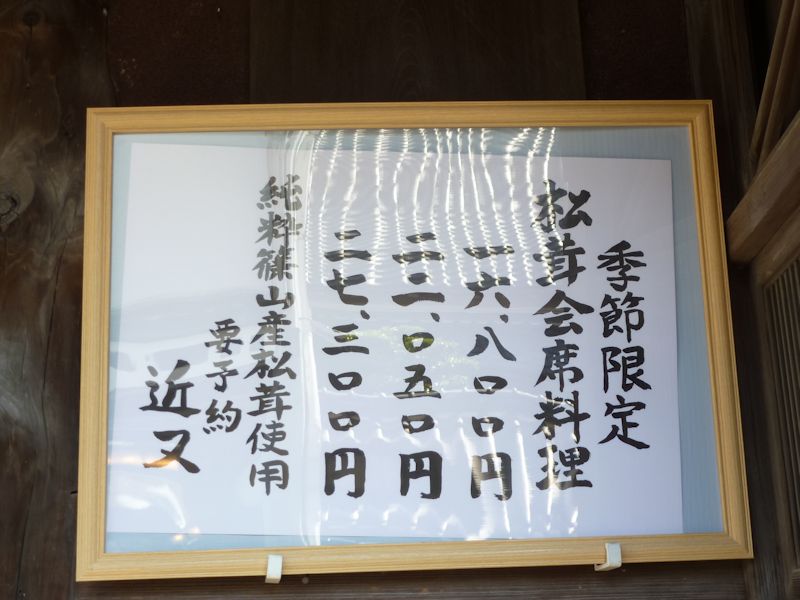 季節限定
松茸会席料理
一六、八〇〇円
二一、〇五〇円
二七、三〇〇円
純粋篠山産松茸使用
要予約
近又